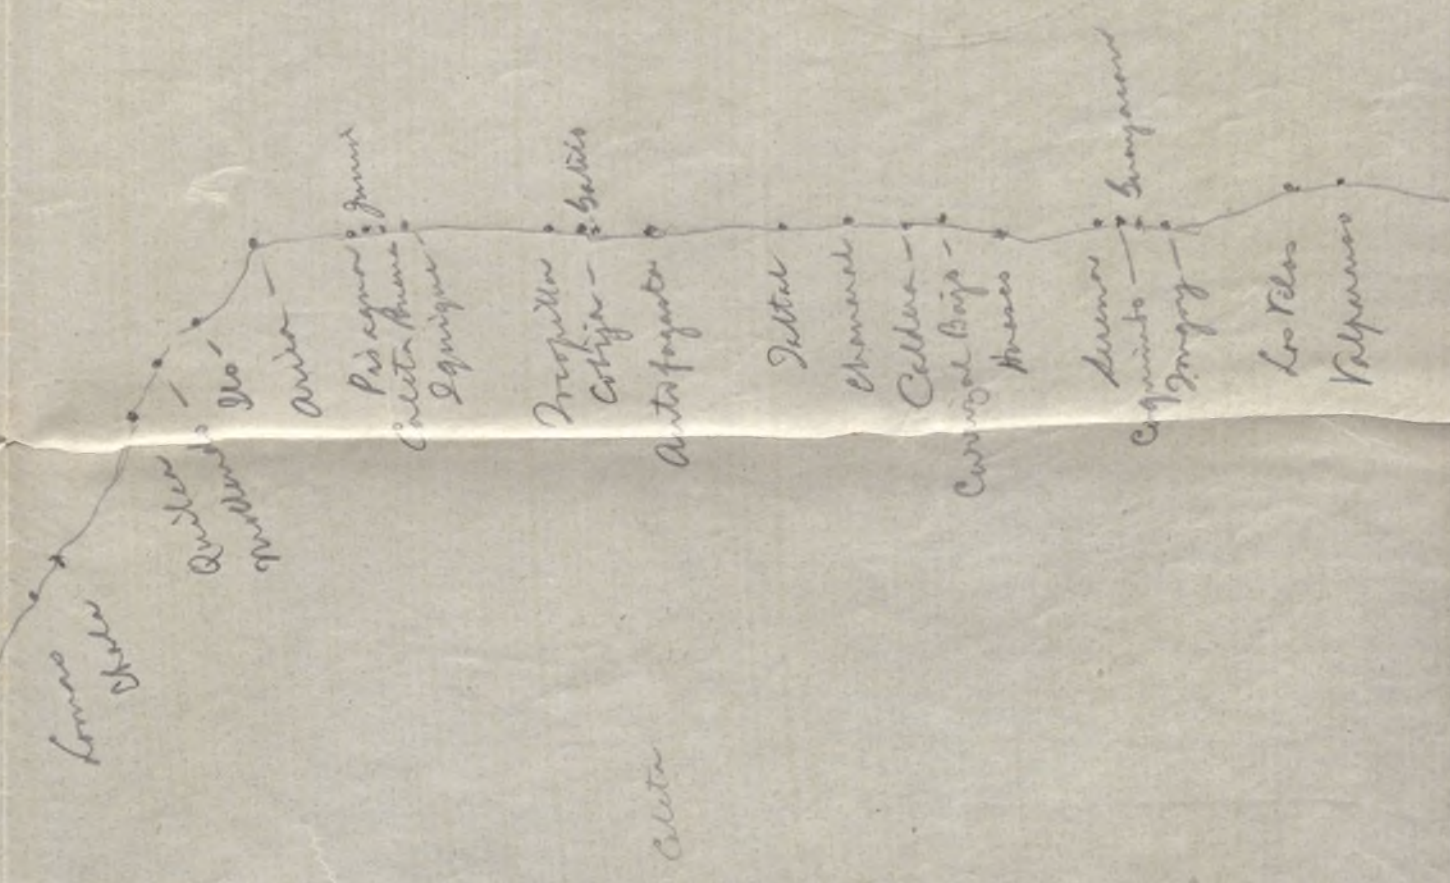 Lomas
Chala
Quilca
Mollendo
Ilo
Arica
Pisagua
Junin
Caleta Buena
Iquique
Tocopilla
Gatico
Cobija
Antofagasta
Taltal
Chanaral
Caldera
Carrizal Bajo
Huasco
Serena
Coquimbo
Guayacan
Tongoy
Los Vilos
Valparaiso
Caleta